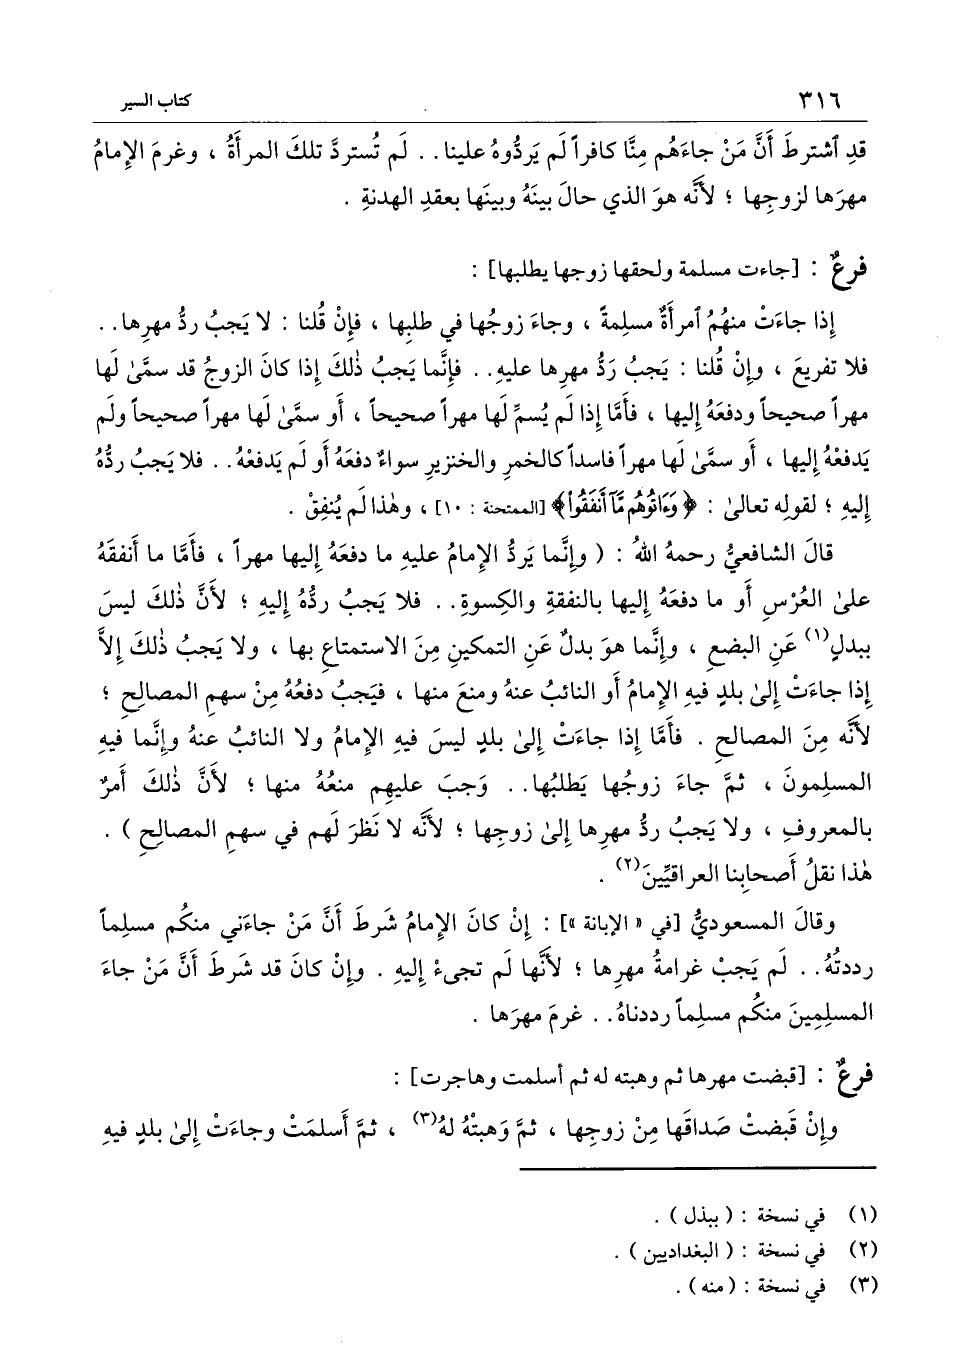 ٣١٦ كتاب السير
قدِ ٱشترطَ أَنَّ مَنْ جاءَهُم مِنَّا كافراً لَم يَردُّوهُ علينا . . لَم تُستردَّ تلكَ المرأَةُ ، وغرمَ الإِمامُ
مهرَها لزوجِها ؛ لأَنَّه هوَ الذي حالَ بينَهُ وبينَها بعقدِ الهدنةِ .
فرعٌ : [جاءت مسلمة ولحقها زوجها يطلبها] :
إِذا جاءَتْ منهُمُ ٱمرأَةٌ مسلِمةً ، وجاءَ زوجُها في طلبِها ، فإِنْ قُلنا : لا يَجبُ ردُّ مهرِها . .
فلا تفريعَ ، وإِنْ قُلنا : يَجبُ رَدُّ مهرِها عليهِ . . فإِنَّما يَجبُ ذٰلكَ إِذا كانَ الزوجُ قد سمَّىٰ لَها
مهراً صحيحاً ودفعَهُ إِليها ، فأَمَّا إِذا لَم يُسمِّ لَها مهراً صحيحاً ، أَو سمَّىٰ لَها مهراً صحيحاً ولَم
يَدفعْهُ إِليها ، أَو سمَّىٰ لَها مهراً فاسداً كالخمرِ والخنزيرِ سواءٌ دفعَهُ أَو لَم يَدفعْهُ . . فلا يَجبُ ردُّهُ
إِليهِ ؛ لقولِه تعالىٰ : ﴿وَءَاتُوهُم مَّآ أَنفَقُواْ﴾ [الممتحنة : ١٠] ، وهٰذا لَم يُنفِقْ .
قالَ الشافعيُّ رحمهُ اللهُ : ( وإِنَّما يَردُّ الإِمامُ عليهِ ما دفعَهُ إِليها مهراً ، فأَمَّا ما أَنفقَهُ
علىٰ العُرْسِ أَو ما دفعَهُ إِليها بالنفقةِ والكِسوةِ . . فلا يَجبُ ردُّهُ إِليهِ ؛ لأَنَّ ذٰلكَ ليسَ
ببدلٍ(١) عَنِ البضعِ ، وإِنَّما هوَ بدلٌ عَنِ التمكينِ مِنَ الاستمتاعِ بها ، ولا يَجبُ ذٰلكَ إِلاَّ
إِذا جاءَتْ إِلىٰ بلدٍ فيهِ الإِمامُ أَو النائبُ عنهُ ومنعَ منها ، فيَجبُ دفعُهُ مِنْ سهمِ المصالحِ ؛
لأَنَّه مِنَ المصالحِ . فأَمَّا إِذا جاءَتْ إِلىٰ بلدٍ ليسَ فيهِ الإِمامُ ولا النائبُ عنهُ وإِنَّما فيهِ
المسلِمونَ ، ثمَّ جاءَ زوجُها يَطلبُها . . وَجبَ عليهِم منعُهُ منها ؛ لأَنَّ ذٰلكَ أَمرٌ
بالمعروفِ ، ولا يَجبُ ردُّ مهرِها إِلىٰ زوجِها ؛ لأَنَّه لا نَظرَ لَهم في سهمِ المصالحِ ) .
هٰذا نقلُ أَصحابِنا العراقيِّينَ(٢) .
وقالَ المسعوديُّ [في « الإبانة »] : إِنْ كانَ الإِمامُ شَرطَ أَنَّ مَنْ جاءَني منكُم مسلِماً
رددتُهُ . . لَم يَجبْ غرامةُ مهرِها ؛ لأَنَّها لَم تجىءْ إِليهِ . وإِن كانَ قد شَرطَ أَنَّ مَنْ جاءَ
المسلِمِينَ منكُم مسلِماً رددناهُ . . غرمَ مهرَها .
فرعٌ : [قبضت مهرها ثم وهبته له ثم أسلمت وهاجرت] :
وإِنْ قَبضتْ صَداقَها مِنْ زوجِها ، ثمَّ وَهبتْهُ لهُ(٣) ، ثمَّ أَسلمَتْ وجاءَتْ إِلىٰ بلدٍ فيهِ
(١) في نسخة : ( ببذل ) .
(٢) في نسخة : ( البغداديين ) .
(٣) في نسخة : ( منه ) .